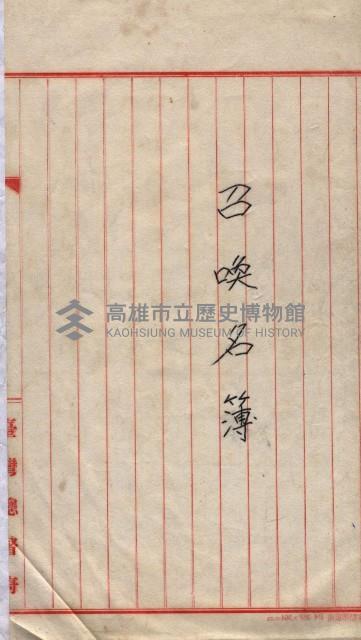 召喚名簿
高雄市立歷史博物館
KAOHSIUNG MUSEUM OF HISTORY
臺灣總督府